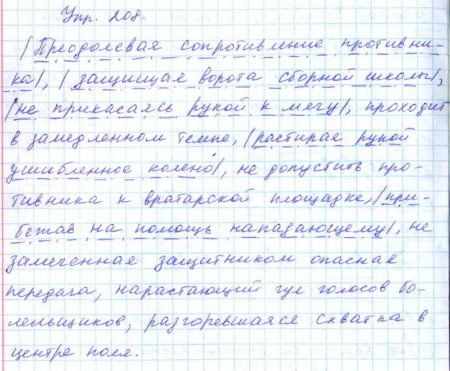 Упр. 208.
|Преодолевая сопротивление противни-
ка|, |защищая ворота сборной школы|,
|не прикасаясь рукой к мячу|, проходит
в замедленном темпе, |растирая рукой
ушибленное колено|, не допустить про-
тивника к вратарской площадке, |при-
бежав на помощь нападающему|, не
замеченная защитником опасная
передача, нарастающий гул голосов бо-
лельщиков, разгоревшаяся схватка в
центре поля.